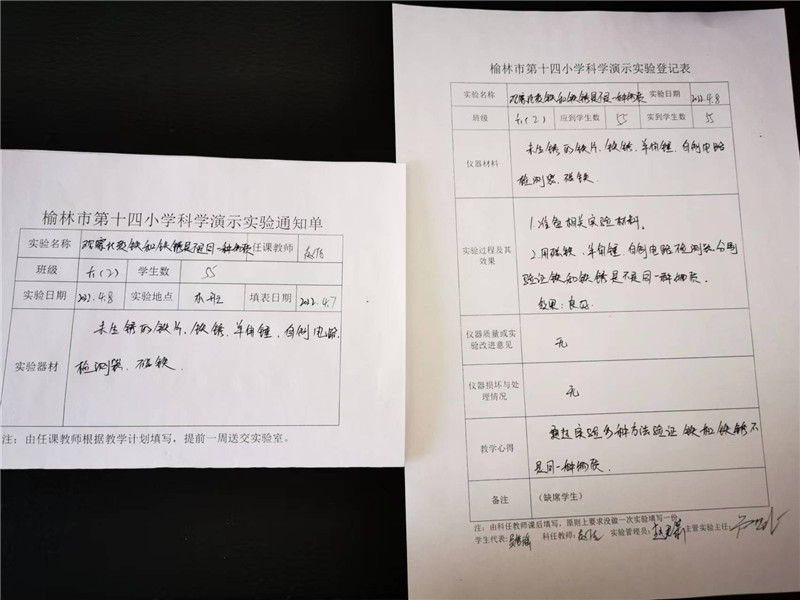 榆林市第十四小学科学演示实验通知单
实验名称 观察比较铁和铁锈是不是同一种物质 任课教师
班级 六(2) 学生数 55
实验日期 2022.4.8 实验地点 本班 填表日期 2022.4.7
实验器材 未生锈的铁片、铁锈、羊角锤、自制电路
检测器、磁铁
注：由任课教师根据教学计划填写，提前一周送交实验室。
榆林市第十四小学科学演示实验登记表
实验名称 实验日期 2022.4.8
班级 六(2) 应到学生数 55 实到学生数 55
仪器材料 未生锈的铁片、铁锈、羊角锤、自制电路
检测器、磁铁
实验过程及其效果 1.准备相关实验材料。
2.用磁铁、羊角锤、自制电路检测器分别
验证铁和铁锈是不是同一种物质。
效果：良好
仪器质量或实验改进意见 无
仪器损坏与处理情况 无
教学心得 通过实验多种方法验证铁和铁锈不
是同一种物质。
备注 （缺席学生）
注：由科任教师课后填写，原则上要求没做一次实验填写一份
学生代表: 科任教师: 实验管理员: 主管实验主任: